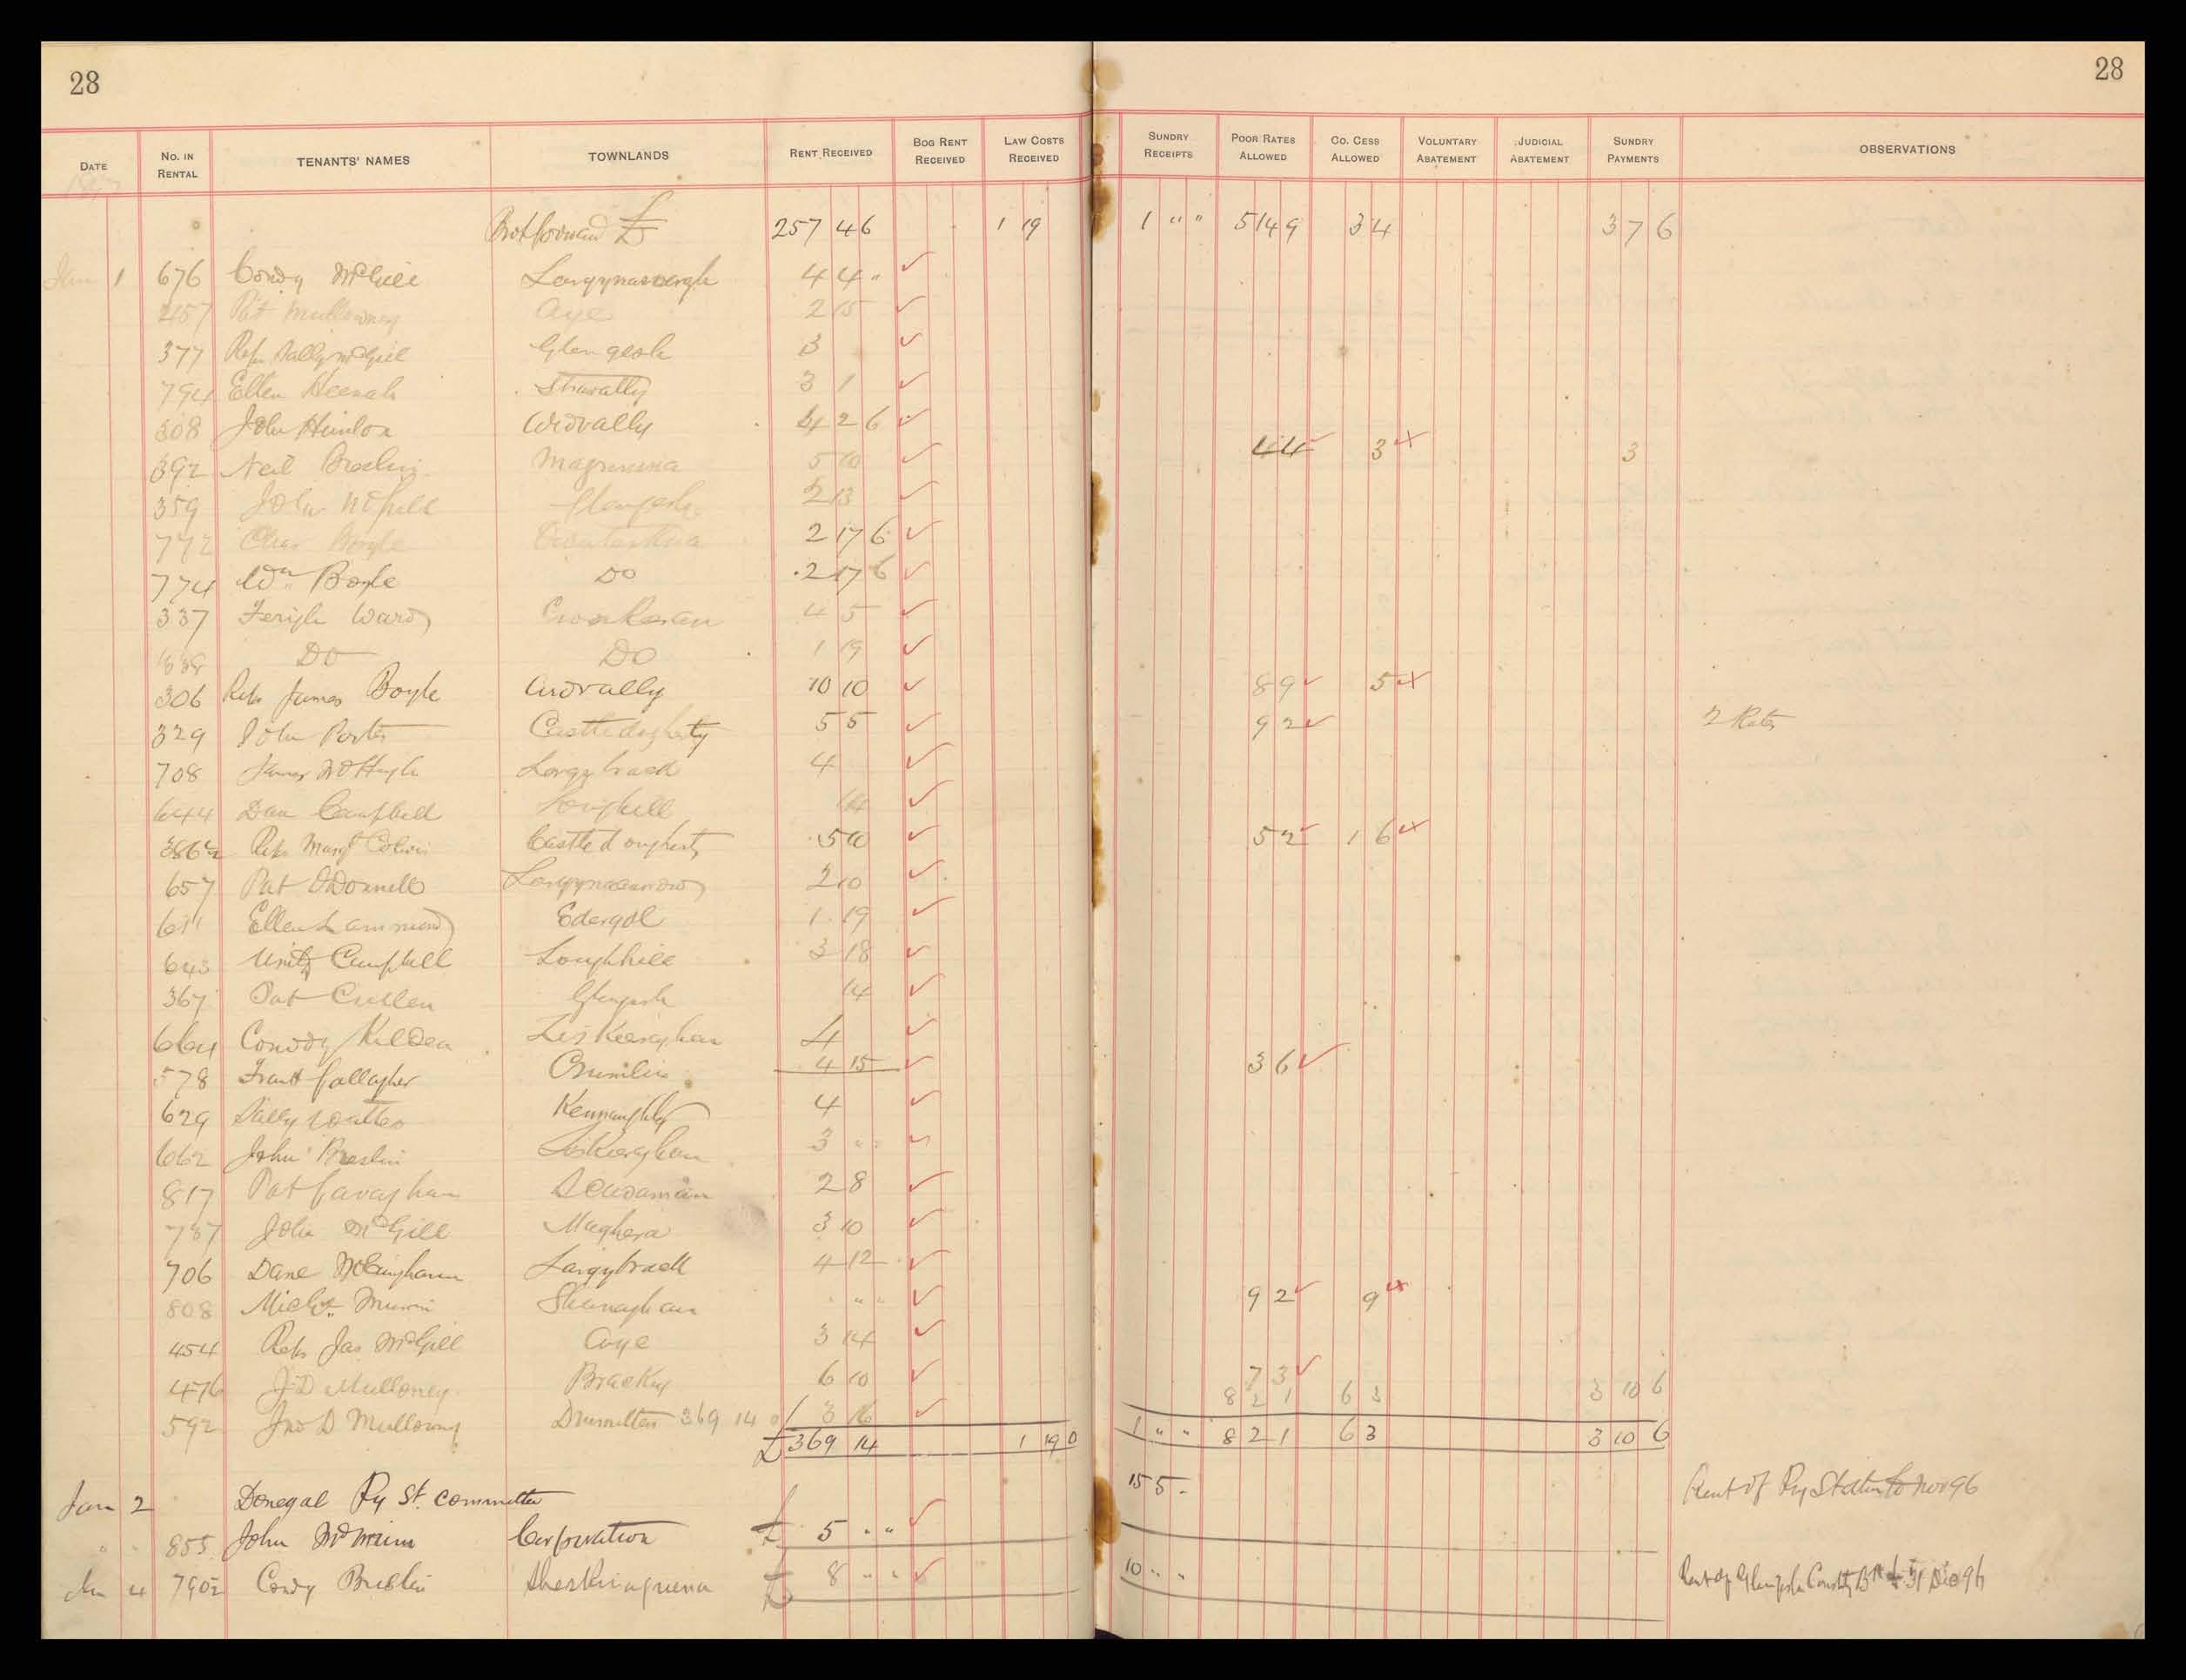 28 28
DATE NO. IN RENTAL TENANTS' NAMES TOWNLANDS RENT RECEIVED BOG RENT RECEIVED LAW COSTS RECEIVED SUNDRY RECEIPTS POOR RATES ALLOWED CO. CESS ALLOWED VOLUNTARY ABATEMENT JUDICIAL ABATEMENT SUNDRY PAYMENTS OBSERVATIONS
1897
Brot forward £ 257 4 6 1 19 1 " " 5 14 9 3 4 3 7 6
Jan 1 676 Condy McGill 4 4 "
457 Pat Mullowney Aye 2 15
377 Reps Sally McGill Glengesh 3
794 Ellen Heenah Stravally 3 1
308 John Hanlon Ardvally 4 2 6 4 4 3 3
392 Neil Breslin 5 10
359 John McGill Glengesh 2 13
772 Chas Boyle 2 17 6
774 Wm Boyle Do 2 17 6
337 Ferigh Ward 4 5
338 Do Do 1 19
306 Reps James Boyle Ardvally 10 10 8 9 5
329 John Porter Castledogherty 5 5 9 2 2 Rates
708 James McHugh Largybrack 4
644 Dan Campbell Loughill 14
Reps Margt Castledougherty 5 10 5 2 1 6
657 Pat ODonnell 2 10
Ellen Edergol 1 19
Unity Campbell Loughhill 3 18
367 Pat Cullen Glengesh 14
664 Condy Kildea Liskeeraghan 4
578 Frank Gallagher Crumlin 4 15 3 6
629 Sally Watters Kennaughty 4
662 John Breslin Liskeraghan 3 " "
817 Pat Gavaghan 2 8
787 John McGill Maghera 3 10
706 Largybrack 4 12
808 Shanaghan " " 9 2 9
454 Reps Jas McGill Aye 3 14
476 J D Mulloney Bracky 6 10 7 3
8 2 1 6 3 3 10 6
592 Jno D Mullowny 369 14 0 3 16
£ 369 14 1 19 0 1 " " 8 2 1 6 3 3 10 6
Jan 2 Donegal Ry St. Committee 15 5 - Rent of Ry Station to Nov 96
" " 855 John Corporation £ 5 " "
Jan 4 Condy Breslin £ 8 " " 10 " " Rent of Glengesh Bk to 31 Dec 96